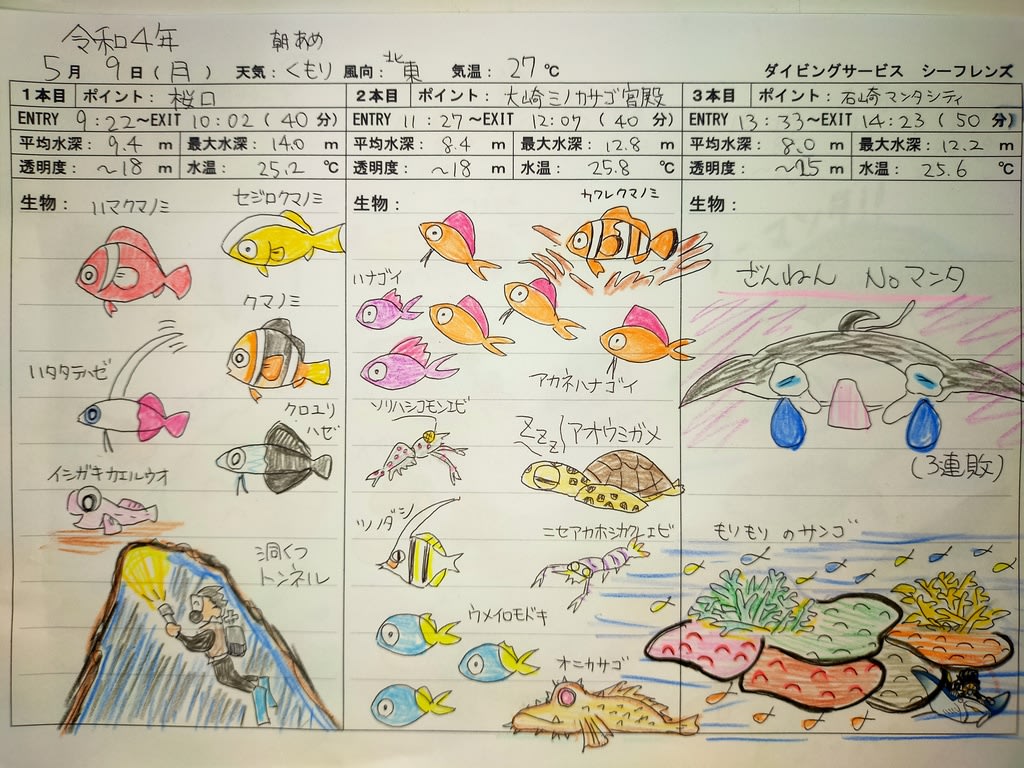 令和4年 朝あめ
5月 9日(月) 天気:くもり 風向:北東 気温:27℃
ダイビングサービス シーフレンズ
1本目 ポイント: 桜口
ENTRY 9:22~EXIT 10:02(40分)
平均水深: 9.4 m 最大水深: 14.0 m
透明度: ~18 m 水温: 25.2 ℃
生物:
ハマクマノミ
セジロクマノミ
クマノミ
ハタタテハゼ
クロユリ
ハゼ
イシガキカエルウオ
洞くつ
トンネル
2本目 ポイント: 大崎ミノカサゴ宮殿
ENTRY 11:27~EXIT 12:07(40分)
平均水深: 8.4 m 最大水深: 12.8 m
透明度: ~18 m 水温: 25.8 ℃
生物:
カクレクマノミ
ハナゴイ
アカネハナゴイ
ソリハシコモンエビ
ZZZ アオウミガメ
ツノダシ
ニセアカホシカクレエビ
ウメイロモドキ
オニカサゴ
3本目 ポイント: 石崎マンタシティ
ENTRY 13:33~EXIT 14:23(50分)
平均水深: 8.0 m 最大水深: 12.2 m
透明度: ~15 m 水温: 25.6 ℃
生物:
ざんねん Noマンタ
(3連敗)
もりもりのサンゴ